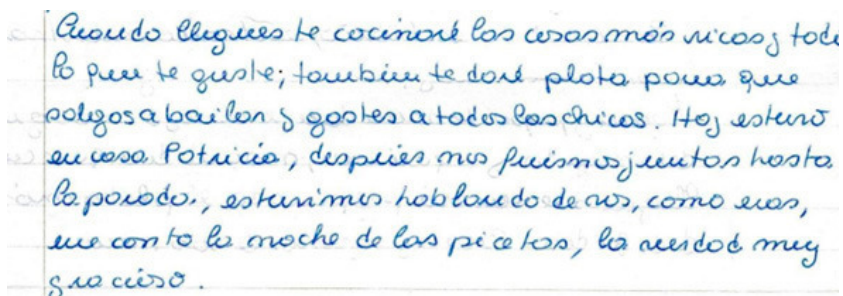 Cuando llegues te cocinaré las cosas más ricas y todo
lo que te guste; tambien te daré plata para que
salgas a bailar y gastes a todos las chicos. Hoy estuvo
en casa Patricia, despúes nos fuimos juntas hasta
la parada, estuvimos hablando de vos, como eras,
me conto la noche de las picetas, la verdad muy
gracioso.